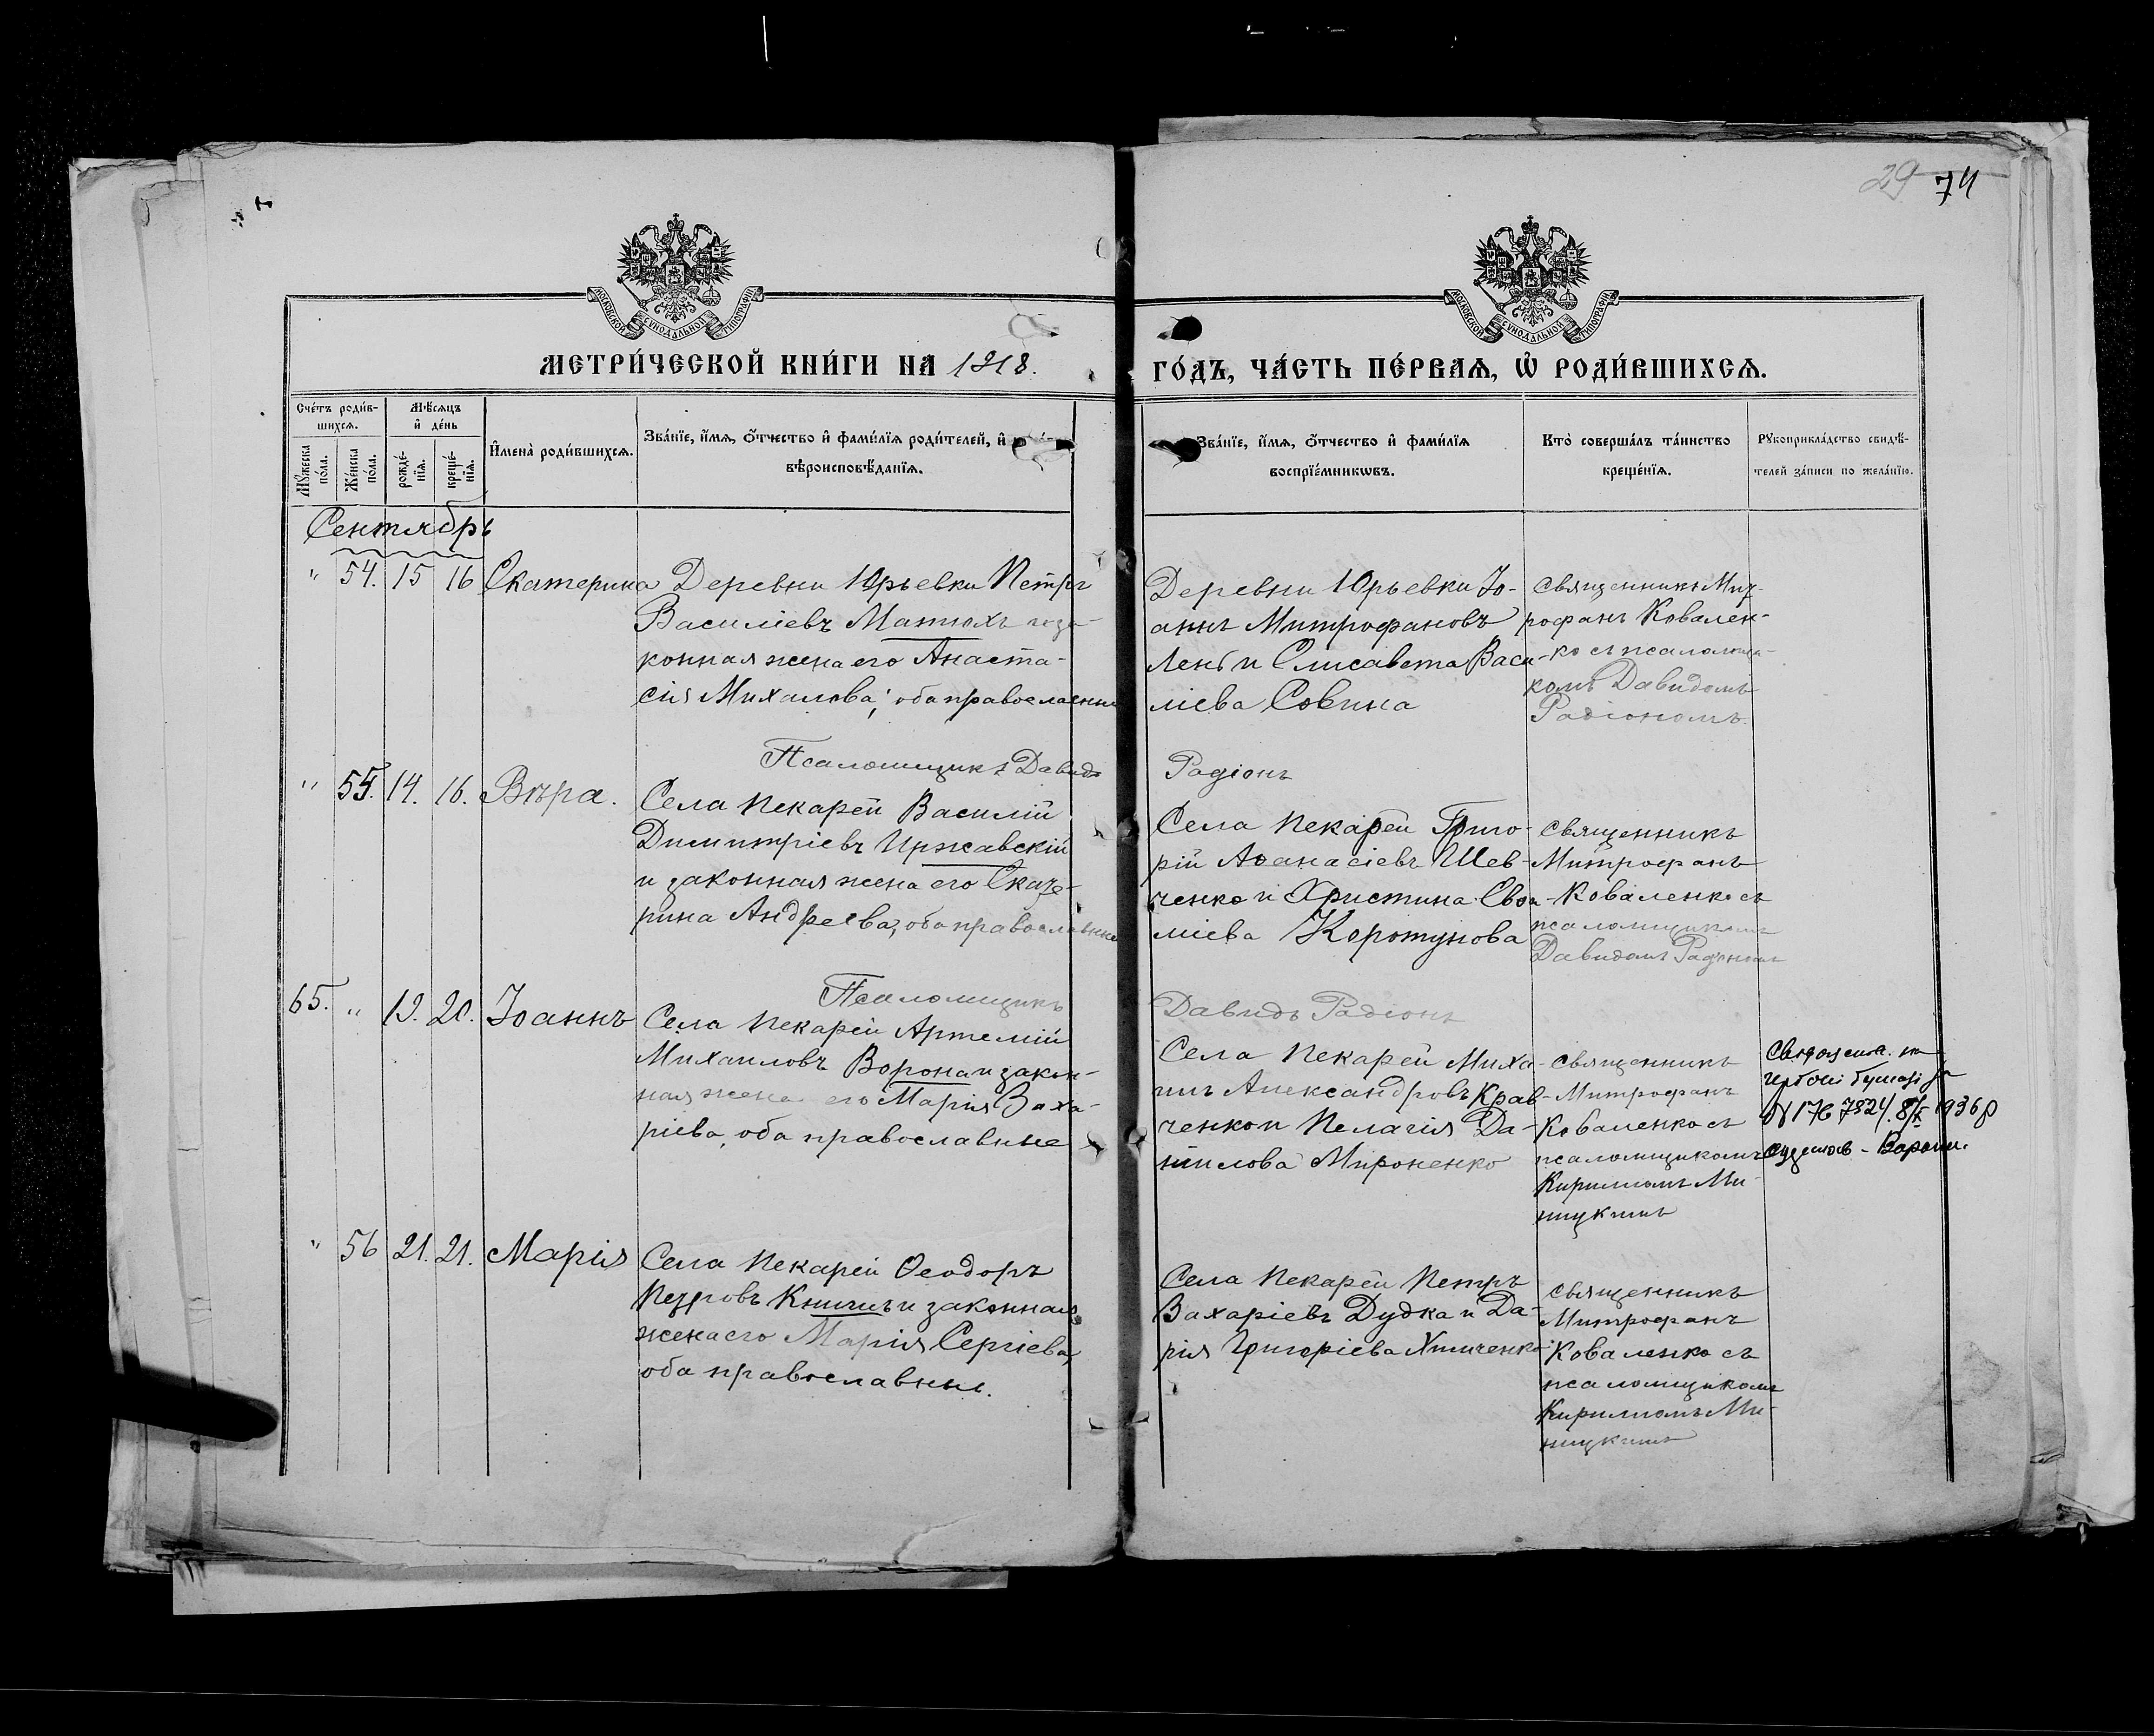 29 74
МОСКОВСКОЙ СѴНОДАЛЬНОЙ ТИПОГРАФІИ
МОСКОВСКОЙ СѴНОДАЛЬНОЙ ТИПОГРАФІИ
МЕТРИ́ЧЕСКОЙ КНИ́ГИ НА 1918.
ГО́ДЪ, ЧА́СТЬ ПЕ́РВАѦ, Ѡ҆ РОДИ́ВШИХСѦ.
Сче́тъ роди́в-
шихсѧ.
Мꙋ́жеска по́ла.
Же́нска по́ла.
Мѣ́сѧцъ
и҆ де́нь
рожде́-
нїѧ.
креще́-
нїѧ.
И҆мена̀ роди́вшихсѧ.
Зва́нїе, и҆́мѧ, ѻ҆́тчество и҆ фами́лїѧ роди́телей, и҆
вѣроисповѣ́данїѧ.
Зва́нїе, и҆́мѧ, ѻ҆́тчество и҆ фами́лїѧ
воспрїе́мникѡвъ.
Кто̀ соверша́лъ та́инство
креще́нїѧ.
Рꙋкоприкла́дство свидѣ́-
телей за́писи по жела́нїю.
Сентябрь
" 54. 15 16 Екатерина
Деревни Юрьевки Петръ
Василіевъ Матюхъ
конная жена его Анаста-
сія Михаилова, оба православные
Деревни Юрьевки Іо-
аннъ Митрофановъ
и Елисавета Васи-
ліева Совина
Священникъ Мит-
рофанъ Ковален-
ко съ псаломщи-
комъ Давидомъ
Радіономъ
Псаломщикъ Давидъ
Радіонъ
" 55. 14. 16. Вѣра.
Села Пекарей Василій
Димитріевъ Иржавскій
и законная жена его Екате-
рина Андреева, оба православные
Села Пекарей Григо-
рій Аѳанасіевъ Шев-
ченко и Христина
Коротунова
Священникъ
Митрофанъ
Коваленко съ
псаломщикомъ
Давидомъ Радіономъ
Псаломщикъ
Давидъ Радіонъ
65. " 19. 20. Іоаннъ
Села Пекарей Артемій
Михаиловъ Ворона и закон-
ная жена его Марія Заха-
ріева, оба православные
Села Пекарей Миха-
илъ Александровъ Крав-
ченко и Пелагія Да-
ніилова Мироненко
Священникъ
Митрофанъ
Коваленко съ
псаломщикомъ
Кирилломъ Ми-
ницкимъ
1936 р
" 56 21. 21. Марія
Села Пекарей Ѳеодоръ
Петровъ Книшъ и законная
жена его Марія Сергіева,
оба православные.
Села Пекарей Петръ
Захаріевъ Дудка и Да-
рія Григоріева
Священникъ
Митрофанъ
Коваленко съ
псаломщикомъ
Кирилломъ Ми-
ницкимъ